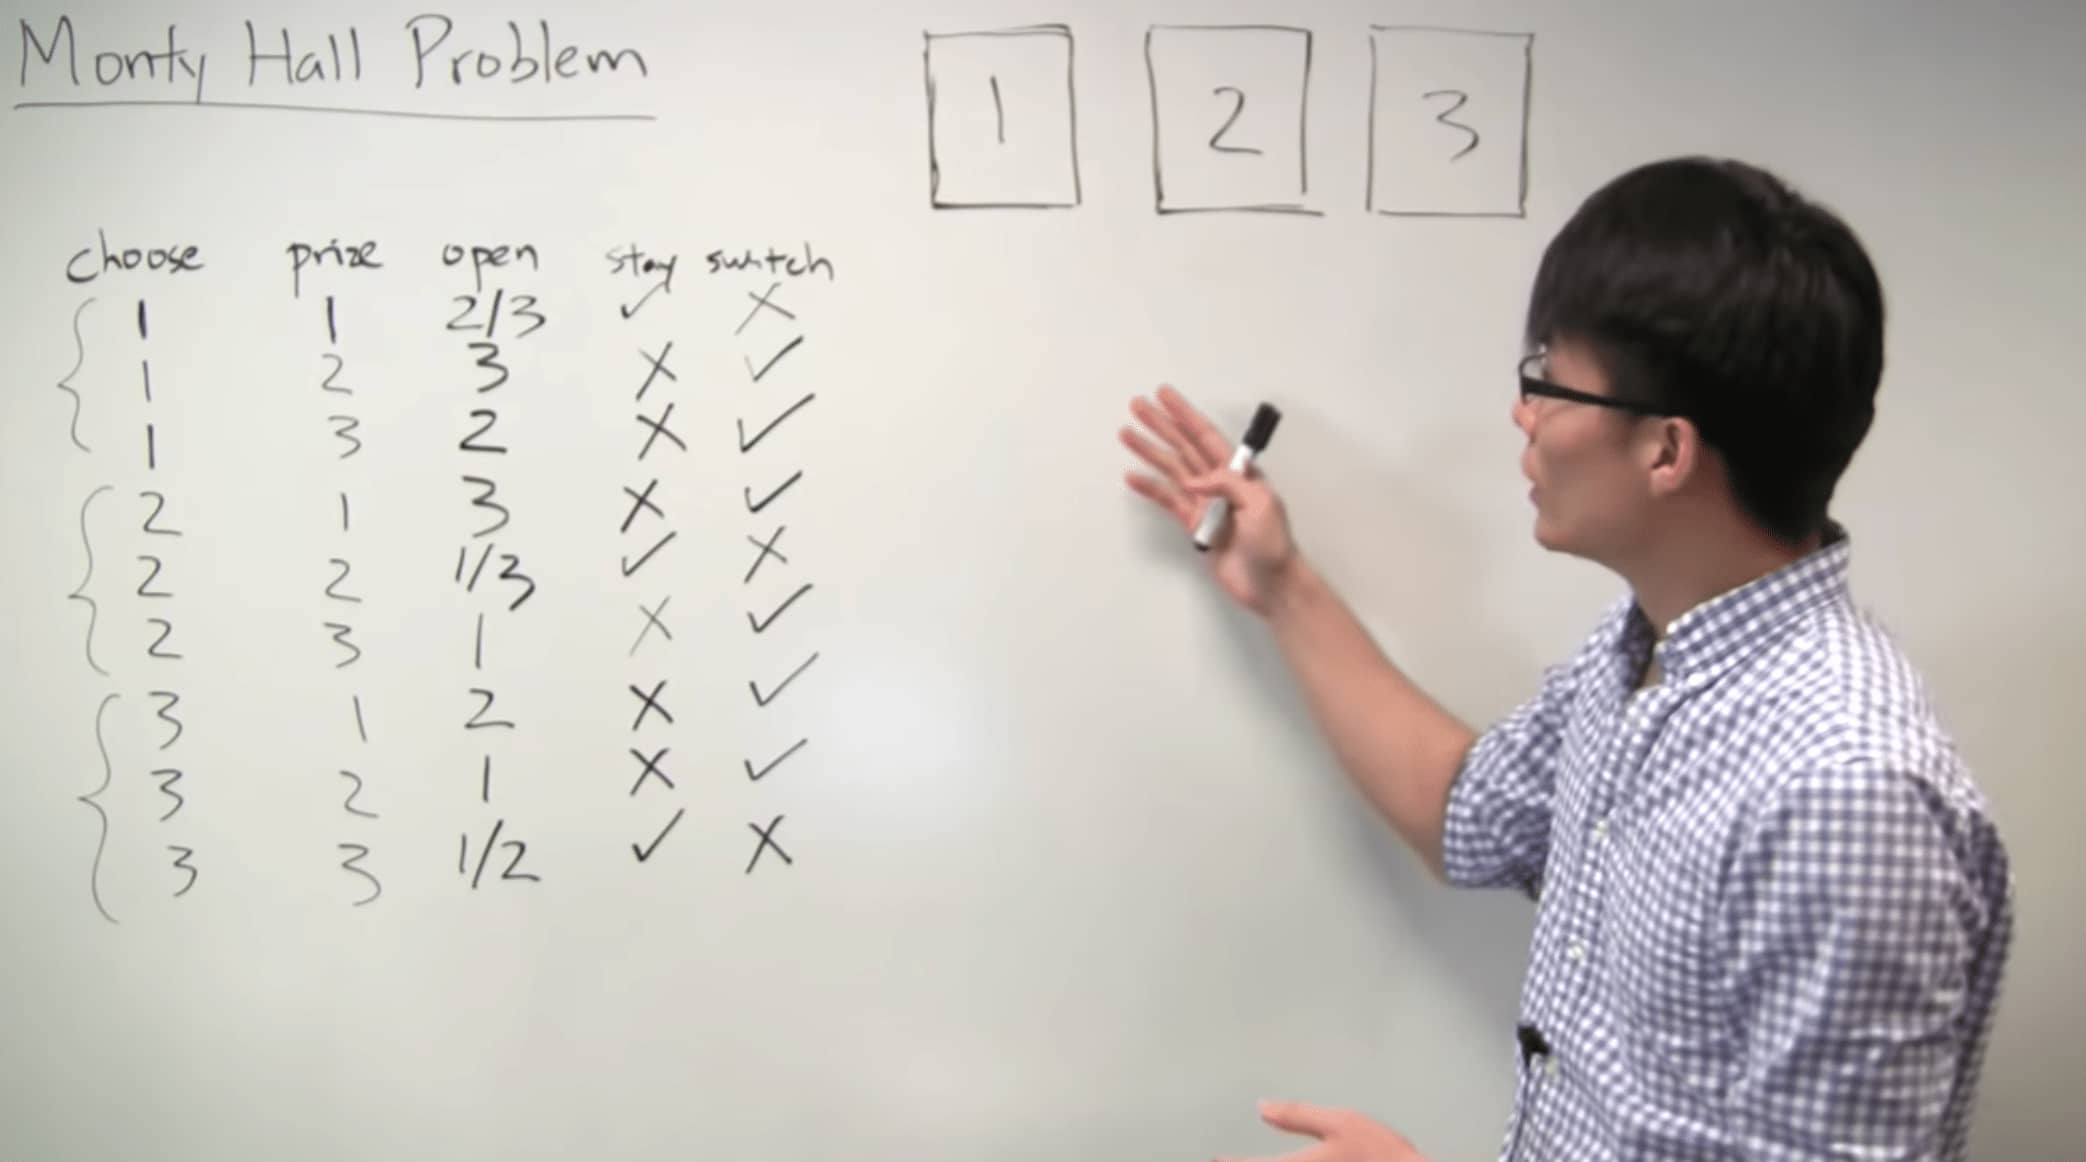 Monty Hall Problem
1 2 3
choose prize open stay switch
1 1 2/3 ✓ X
1 2 3 X ✓
1 3 2 X ✓
2 1 3 X ✓
2 2 1/3 ✓ X
2 3 1 X ✓
3 1 2 X ✓
3 2 1 X ✓
3 3 1/2 ✓ X